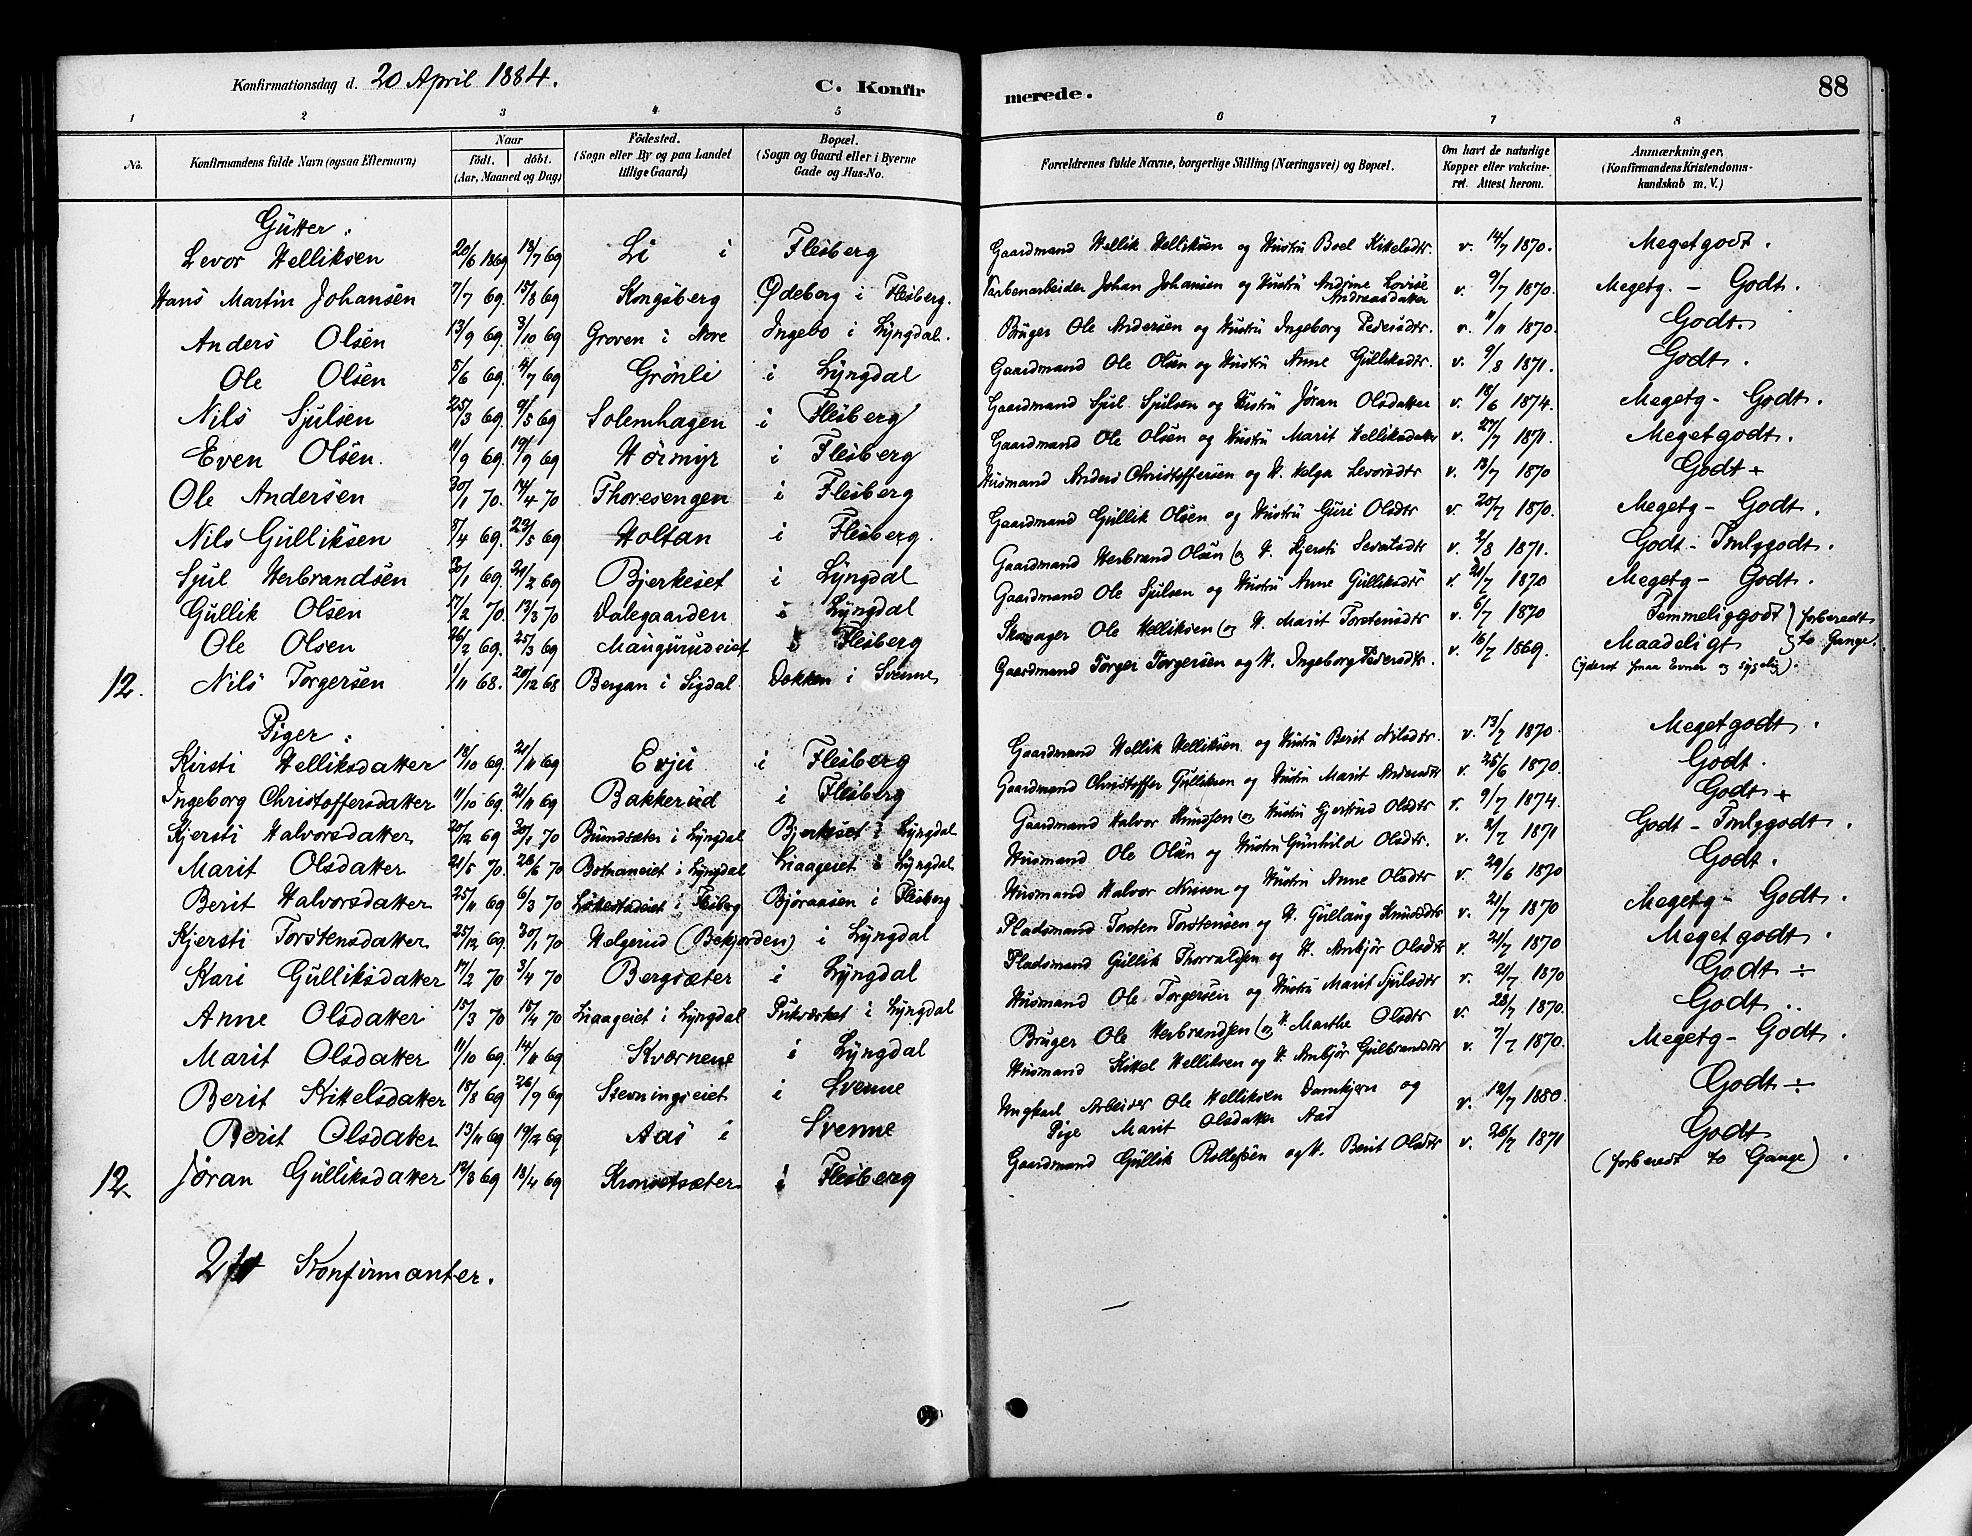 Konfirmationsdag d. 20 April 1884.
C. Konfir
merede.
88
1 2 3 4 5 6 7 8
No.
Konfirmandens fulde Navn (ogsaa Efternavn)
Naar
födt. döbt.
(Aar, Maaned og Dag)
Födested.
(Sogn eller By og paa Landet
tillige Gaard)
Bopæl.
(Sogn og Gaard eller i Byerne
Gade og Hus-No.
Forældrenes fulde Navne, borgerlige Stilling (Næringsvei) og Bopæl.
Om havt de naturlige
Kopper eller vakcine-
ret. Attest herom.
Anmærkninger,
(Konfirmandens Kristendoms-
kundskab m. V.)
Gutter:
Levor Helliksen 20/6 1869 18/7 69 Li i Flesberg Gaardmand Hellik Helliksen og Hustru Boel Kittelsdtr. v. 14/7 1870. Megetgodt.
Hans Martin Johansen 7/7 69. 15/8 69 Kongsberg Ødeberg i Flesberg. Farbenarbeider Johan Johansen og Hustru Andrine Lovise Andreasdatter v. 9/7 1870. Megetg. - Godt.
Anders Olsen 13/9 69. 3/10 69 Groven i Nore Ingebo i Lyngdal. Bruger Ole Andersen og Hustru Ingeborg Pedersdtr. v. 11/11 1870. Godt.
Ole Olsen 5/6 69. 4/7 69 Grönli i Lyngdal Gaardmand Ole Olsen og Hustru Anne Gulliksdtr v. 9/8 1871. Godt.
Nils Sjulsen 25/3 69. 9/5 69 Solemhagen i Flesberg Gaardmand Sjul Sjulsen og Hustru Jöran Olsdatter v. 18/6 1874. Megetg - Godt.
Even Olsen. 11/9 69. 19/9 69 Hörmyr i Flesberg Gaardmand Ole Olsen og Hustru Marit Helliksdatter v. 27/7 1871. Megetgodt.
Ole Andersen 30/1 70. 14/4 70 Thoresengen i Flesberg Husmand Anders Christoffersen og H. Helga Levorsdtr v. 13/7 1870 Godt +
Nils Gulliksen 8/4 69. 23/5 69 Holtan i Flesberg. Gaardmand Gullik Olsen og Hustru Guri Olsdtr v. 20/7 1870. Megetg - Godt.
Sjul Herbrandsen 30/1 69. 21/2 69 Bjerkeset i Lyngdal Gaardmand Herbrand Olsen og H. Kjersti v. 2/8 1871. Godt - Tmlggodt.
Gullik Olsen 17/2 70. 13/3 70 Dalegaarden i Lyngdal Gaardmand Ole Sjulsen og Hustru Anne Gulliksdtr v. 21/7 1870 Megetg - Godt.
Ole Olsen 26/2 69. 25/3 69 Maugurudeiet i Flesberg Ole Helliksen og H. Marit Torstensdtr v. 6/7 1870 Temmeliggodt (forberedt
12. Nils Torgersen 1/11 68. 20/12 68 Bergan i Sigdal Dokken i Svenne Gaardmand Torger Torgersen og H. Ingeborg Pedersdtr. v. 16/7 1869. Maadeligt to Gange).
(yderst smaa Evner og sygelig).
Piger:
Kirsti Helliksdatter 18/10 69. 21/11 69 Evju i Flesberg Gaardmand Hellik Helliksen og Hustru Berit Nilsdtr. v. 13/7 1870. Megetgodt.
Ingeborg Christoffersdatter 11/10 69. 21/11 69 Bakkerud i Flesberg Gaardmand Christoffer Gulliksen og Hustru Marit Andersdtr v. 25/6 1870. Godt.
Kjersti Halvorsdatter 20/12 69 30/1 70 Brundsæter i Lyngdal Bjerkeset i Lyngdal Gaardmand Halvor Knudsen og Hustru Gjertrud Olsdtr v. 9/7 1874. Godt +
Marit Olsdatter 21/5 70. 26/6 70 Botnaneiet i Lyngdal Liaageiet i Lyngdal Husmand Ole Olsen og Hustru Gunhild Olsdtr. v. 2/7 1871 Godt - Tmlggodt.
Berit Halvorsdatter 25/11 69 6/3 70 i Flesberg Björaasen i Flesberg Husmand Halvor og Hustru Anne Olsdtr v. 29/6 1870 Godt.
Kjersti Torstensdatter 25/12 69. 30/1 70 Helgerud (Bekjorden) i Lyngdal Pladsmand Torsten Torstensen og H. Gullaug Knudsdtr v. 21/7 1870 Megetg - Godt.
Kari Gulliksdatter 17/2 70 3/4 70 Bergsæter i Lyngdal Pladsmand Gullik Thorvaldsen og H. Anbjör Olsdtr v. 21/7 1870 Megetgodt.
Anne Olsdatter 15/3 70 18/4 70 Liaageiet i Lyngdal Pukværket i Lyngdal Husmand Ole Torgersen og Hustru Marit Sjulsdtr v. 21/7 1870 Godt ÷
Marit Olsdatter 11/10 69. 14/11 69 Kværnene i Lyngdal Bruger Ole Herbrandsen og H. Marthe Olsdtr v. 28/7 1870. Godt.
Berit Kittelsdatter 18/8 69 26/9 69 Stevningseiet i Svenne Husmand Kittel Helliksen og H. Anbjör Gulbrandsdtr v. 7/7 1870. Megetg - Godt.
Berit Olsdatter 13/11 69 19/12 69 Aas i Svenne Ungkarl Arbeider Ole Helliksen Damkjern og
Pige Marit Olsdatter Aas v. 12/7 1880. Godt ÷
12. Jöran Gulliksdatter 12/3 69 18/4 69 Kronsetsæter i Flesberg Gaardmand Gullik Rollefsen og H. Berit Olsdtr v. 26/7 1871 Godt
(forberedt to Gange).
24 Konfirmanter.